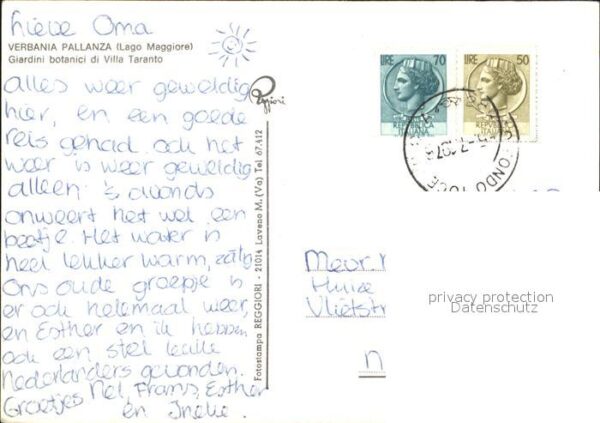 Lieve Oma
VERBANIA PALLANZA (Lago Maggiore)
Giardini botanici di Villa Taranto
Alles weer geweldig
hier, en een goede
reis gehad ook het
weer is weer geweldig
alleen 's avonds
onweert het wel een
beetje. Het water is
heel lekker warm, zalig
Ons oude groepje is
er ook helemaal weer,
en Esther en ik hebben
ook een stel leuke
nederlanders gevonden.
Groetjes Nel, Frans, Esther
en Ineke.
Reggiori
Fotostampa REGGIORI - 21014 Laveno M. (Va) Tel 67.412
LIRE 70
REPUBBLICA
ITALIANA
LIRE 50
REPUBBLICA
ITALIANA
Mevr.
Huize
Vlietstr
privacy protection
Datenschutz